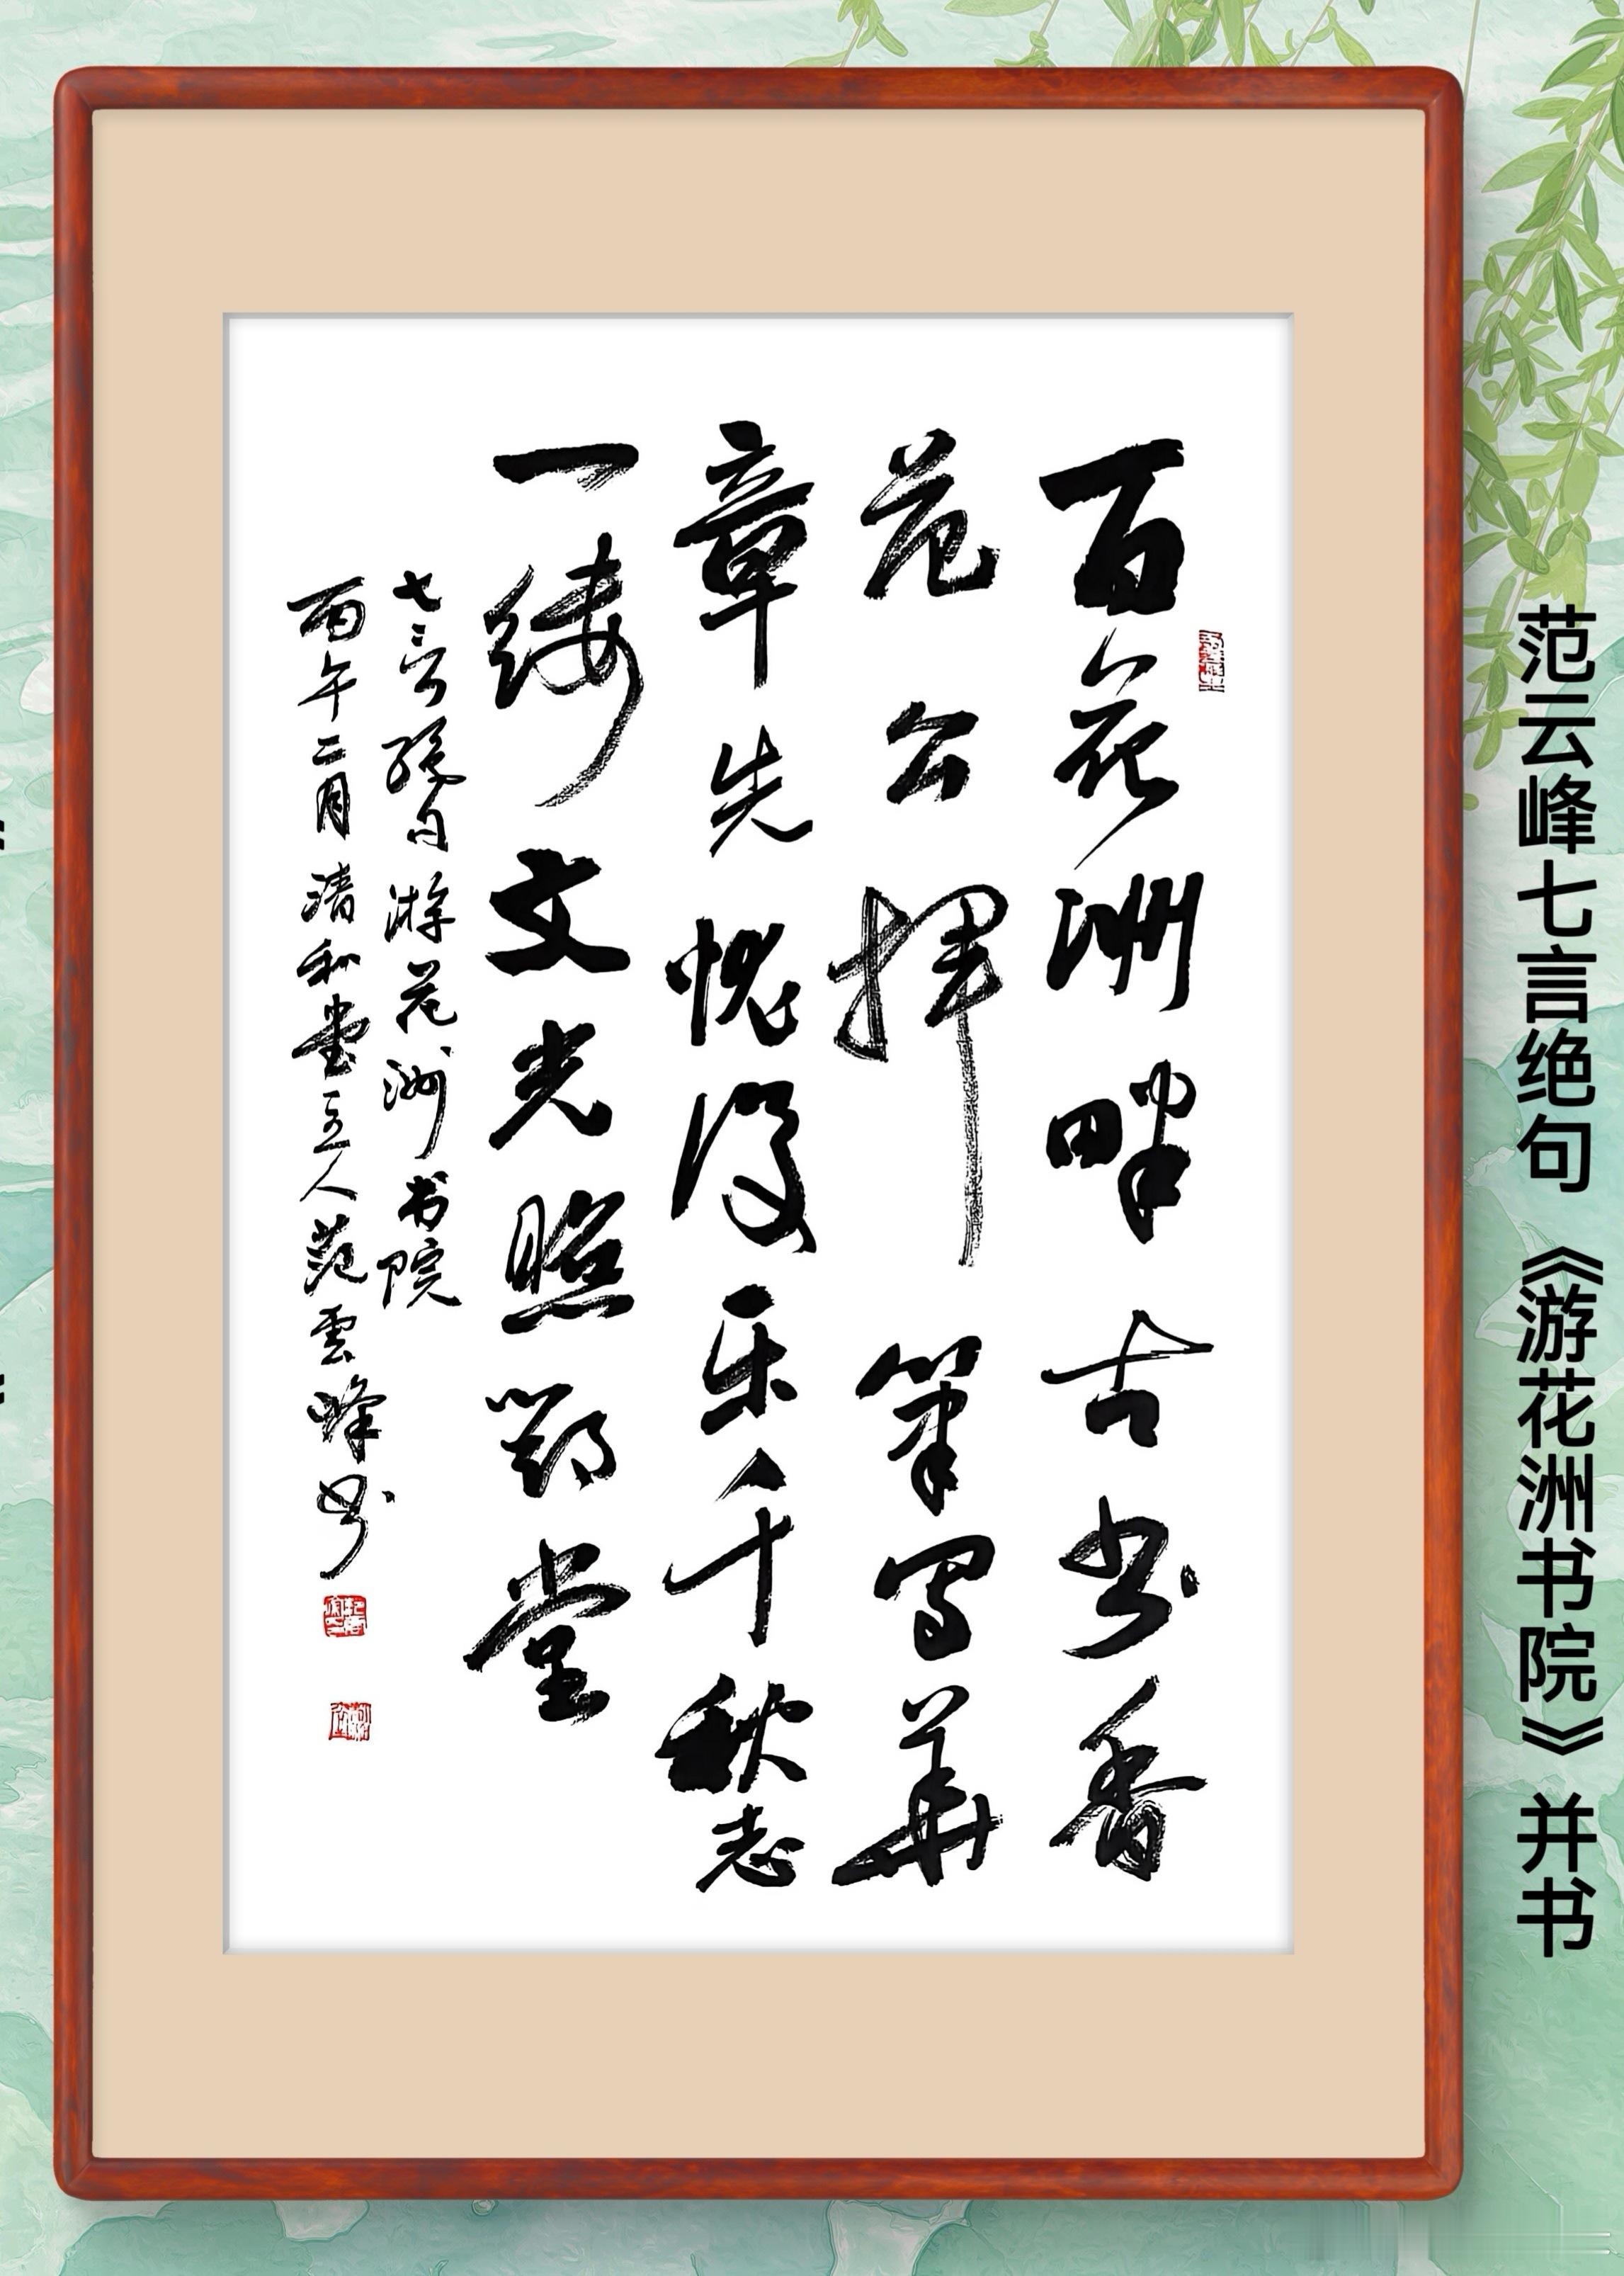 范云峰七言绝句《游花洲书院》并书
百花洲畔古书香
范公揮筆写華
章先忧後乐千秋志
一缕文光照鄧堂
七言绝句游花洲书院
丙午二月清和堂主人范雲峰书